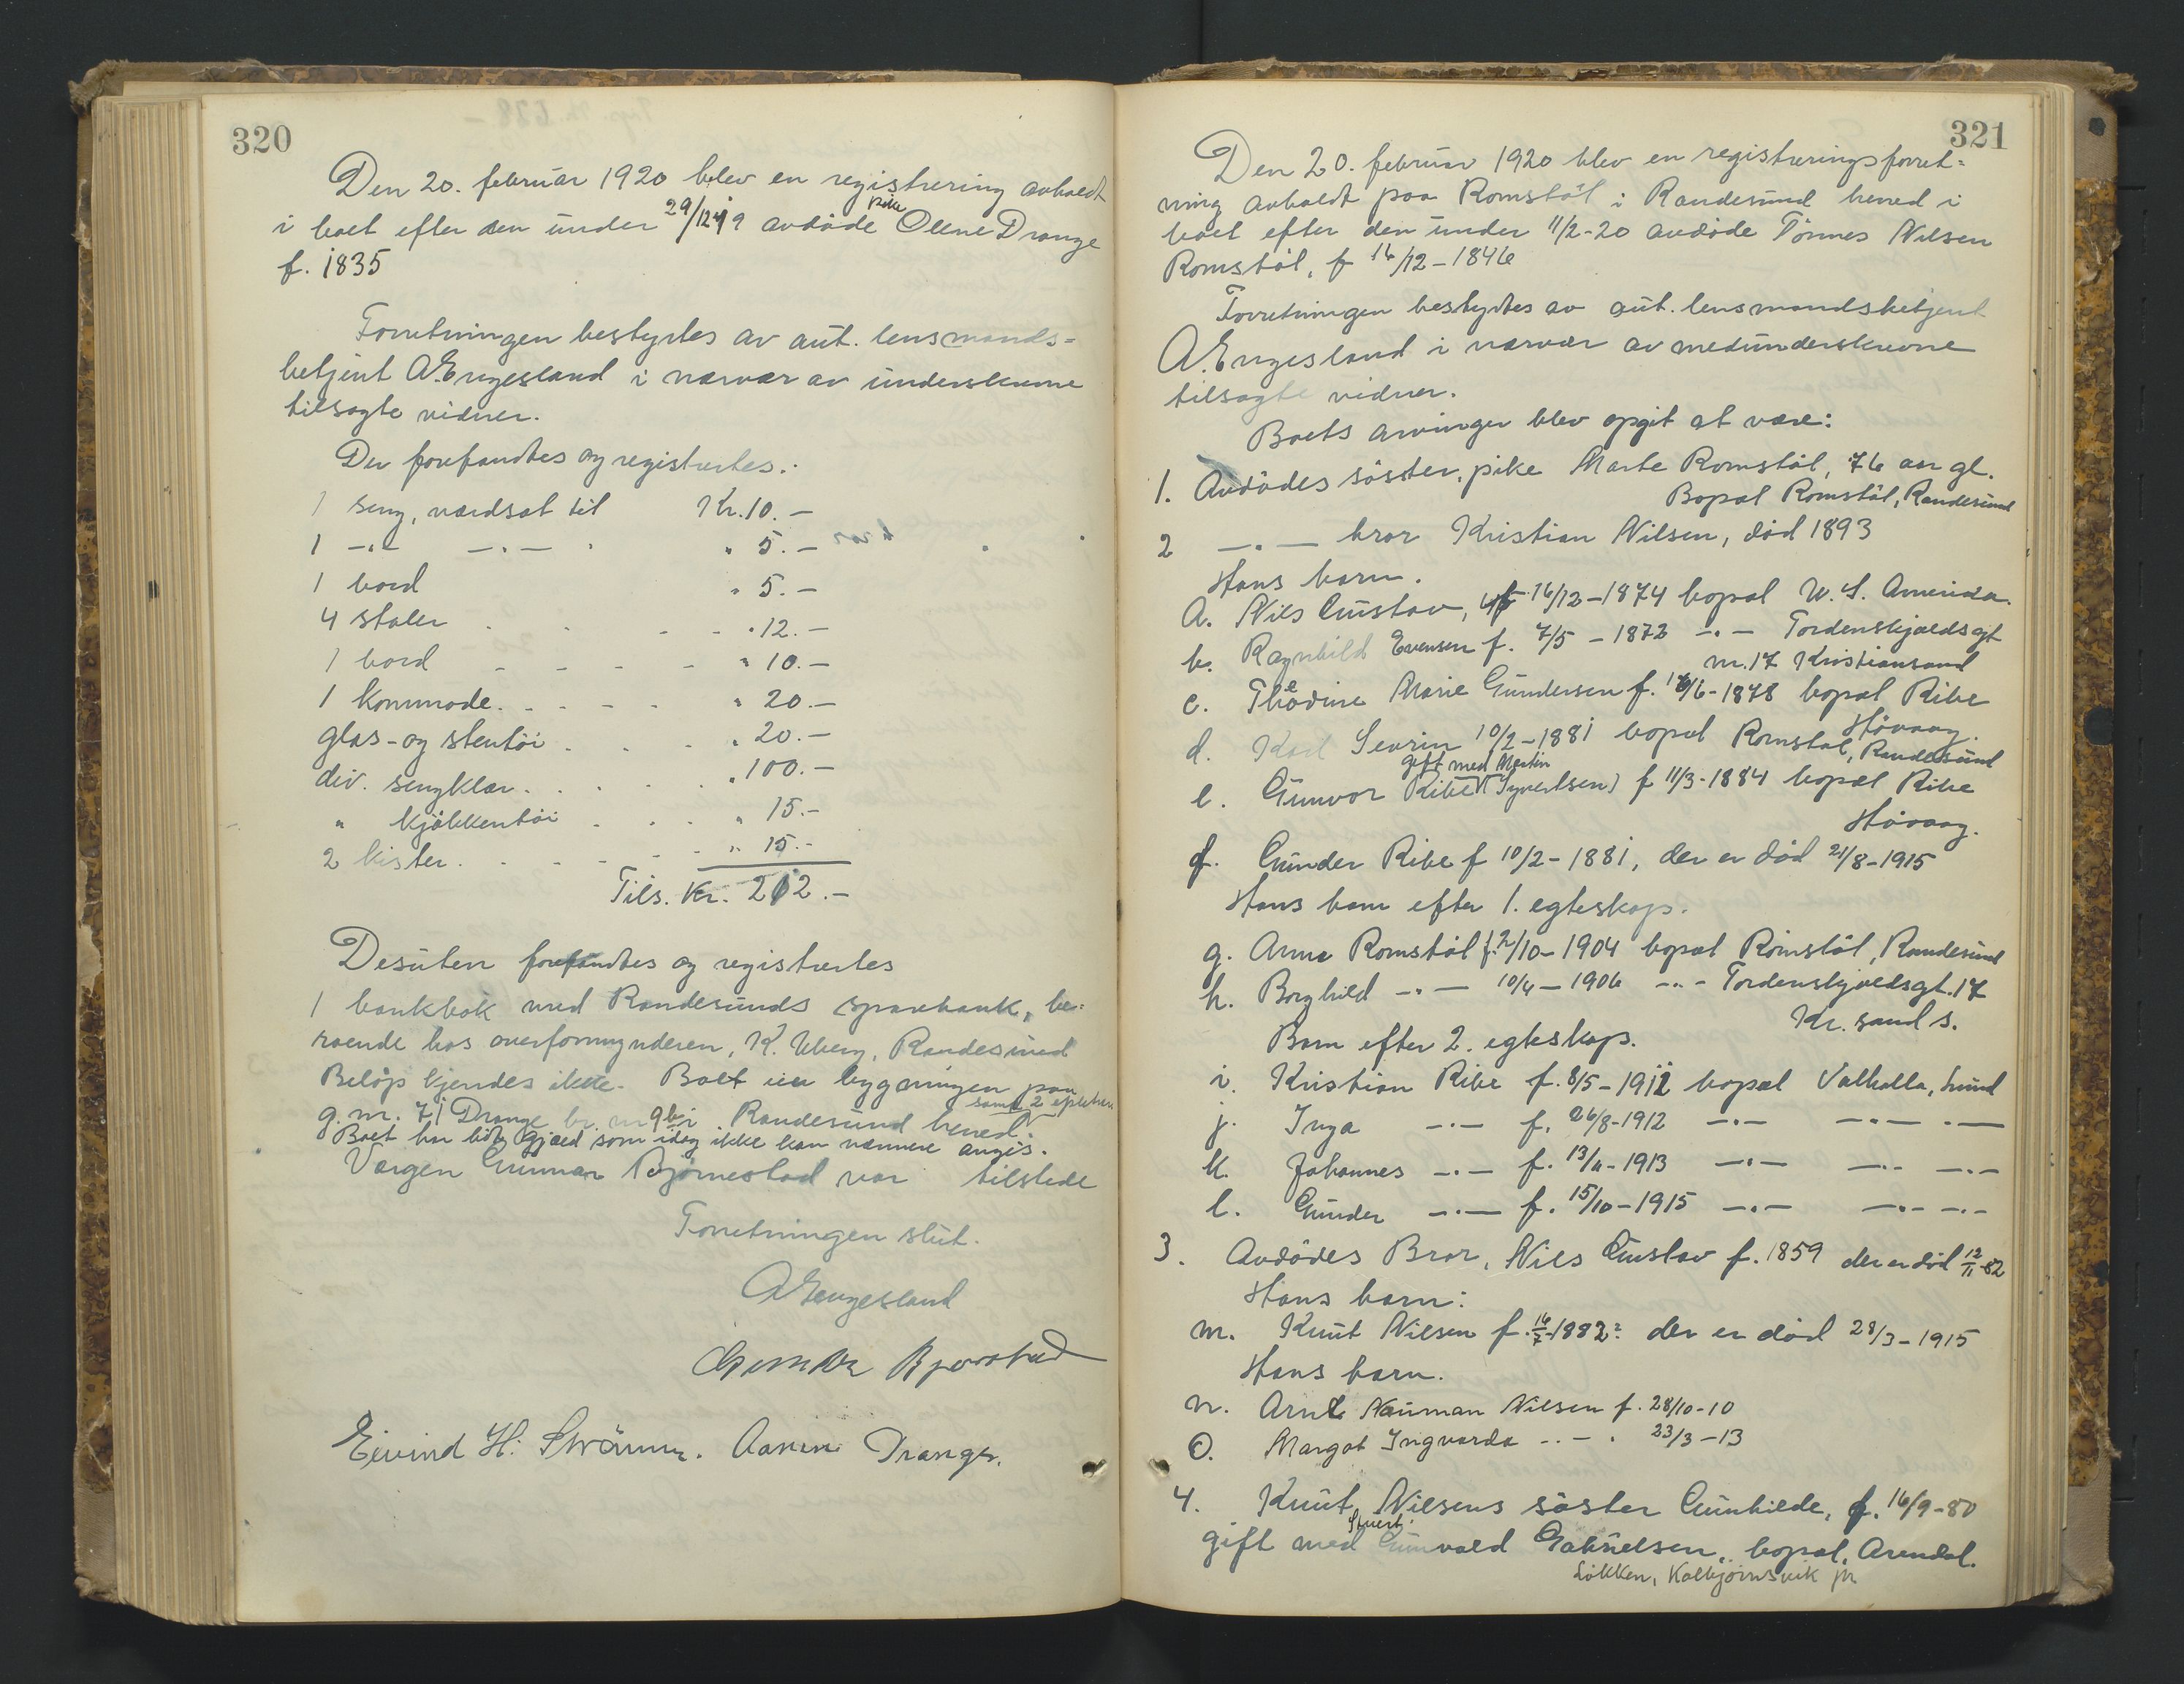 320
Den 20. februar 1920 blev en registrering avholdt
i boet efter den under 29/12 19 avdöde pike Olene Drange
f. 1835
Forretningen bestyrtes av aut. lensmands=
betjent A. Engesland i nærvær av underskrevne
tilsagte vidner.
Der forefandtes og registrertes:
1 seng, værdsat til Kr. 10.-
1 -"- -"- " 5.-
1 bord " 5.-
4 stoler " 12.-
1 bord " 10.-
1 kommode " 20.-
glas- og stentöi " 20.-
div. sengklær " 100.-
" kjökkentöi " 15.-
2 kister " 15.-
Tils. Kr. 212.-
Desuten forefandtes og registrertes
1 bankbok med Randesunds sparebank, be=
roende hos overformynderen, K. Uberg, Randesund
Belöp kjendes ikke. Boet eier bygningen paa
g.nr. 71 Drange br. nr 9 i Randesund herred
samt 2
Boet har gjæld som idag ikke kan nærmere angis.
Værgen Gunnar Bjørnestad var tilstede
Forretningen slut.
A Engesland
Gunnar Bjørnstad
Eivind H. Strömme. Aanen Drange.
321
Den 20. februar 1920 blev en registreringsforret=
ning avholdt paa Romstöl i Randesund herred i
boet efter den under 11/2-20 avdöde Tönnes Nilsen
Romstöl, f 16/12-1846
Forretningen bestyrtes av aut. lensmandsbetjent
A. Engesland i nærvær av medunderskrevne
tilsagte vidner.
Boets arvinger blev opgit at være:
1. Avdödes söster, pike Marte Romstöl, 76 aar gl.
Bopæl Romstöl, Randesund
2 -"- bror Kristian Nilsen, död 1893
Hans barn.
a. Nils Gustav, f. 16/12-1874 bopæl U. S. Amerika.
b. Ragnhild Evensen f. 7/5-1872 -"- Tordenskjoldsgt
nr. 17 Kristiansand
c. Theodine Marie Gundersen f. 16/6-1878 bopæl Ribe
Hövaag.
d. Karl Severin 10/2-1881 bopæl Romstöl, Randesund
e. Gunvor Ribe (gift med Martin Syvertsen) f 11/3-1884 bopæl Ribe
Hövaag.
f. Gunder Ribe f 10/2-1881, der er död 21/8-1915
Hans barn efter 1. egteskap.
g. Anne Romstöl f. 2/10-1904 bopæl Romstöl, Randesund
h. Borghild -"- 10/4-1906 -"- Tordenskjoldsgt. 17
Kr. sand s.
Barn efter 2. egteskap.
i. Kristian Ribe f. 8/5-1911 bopæl Valhalla, Lund
j. Inga -"- f. 26/8-1912 -"- -"- -"-
k. Johannes -"- f. 13/11-1913 -"- -"- -"-
l. Gunder -"- f. 15/10-1915 -"- -"- -"-
3. Avdödes Bror, Nils Gustav f. 1859 der er död 12/11-82
Hans barn:
m. Knut Nilsen f. 16/7-1882: der er död 28/3-1915
Hans barn.
n. Arnt Nauman Nilsen f. 28/10-10
o. Margot Ingvarda -"- 23/3-13
4. Knut Nilsens söster Gunhilde, f. 16/9-80
gift med Gunvald Gabrielsen, bopæl, Arendal.
Løkken, Kolbjørnsvik pr